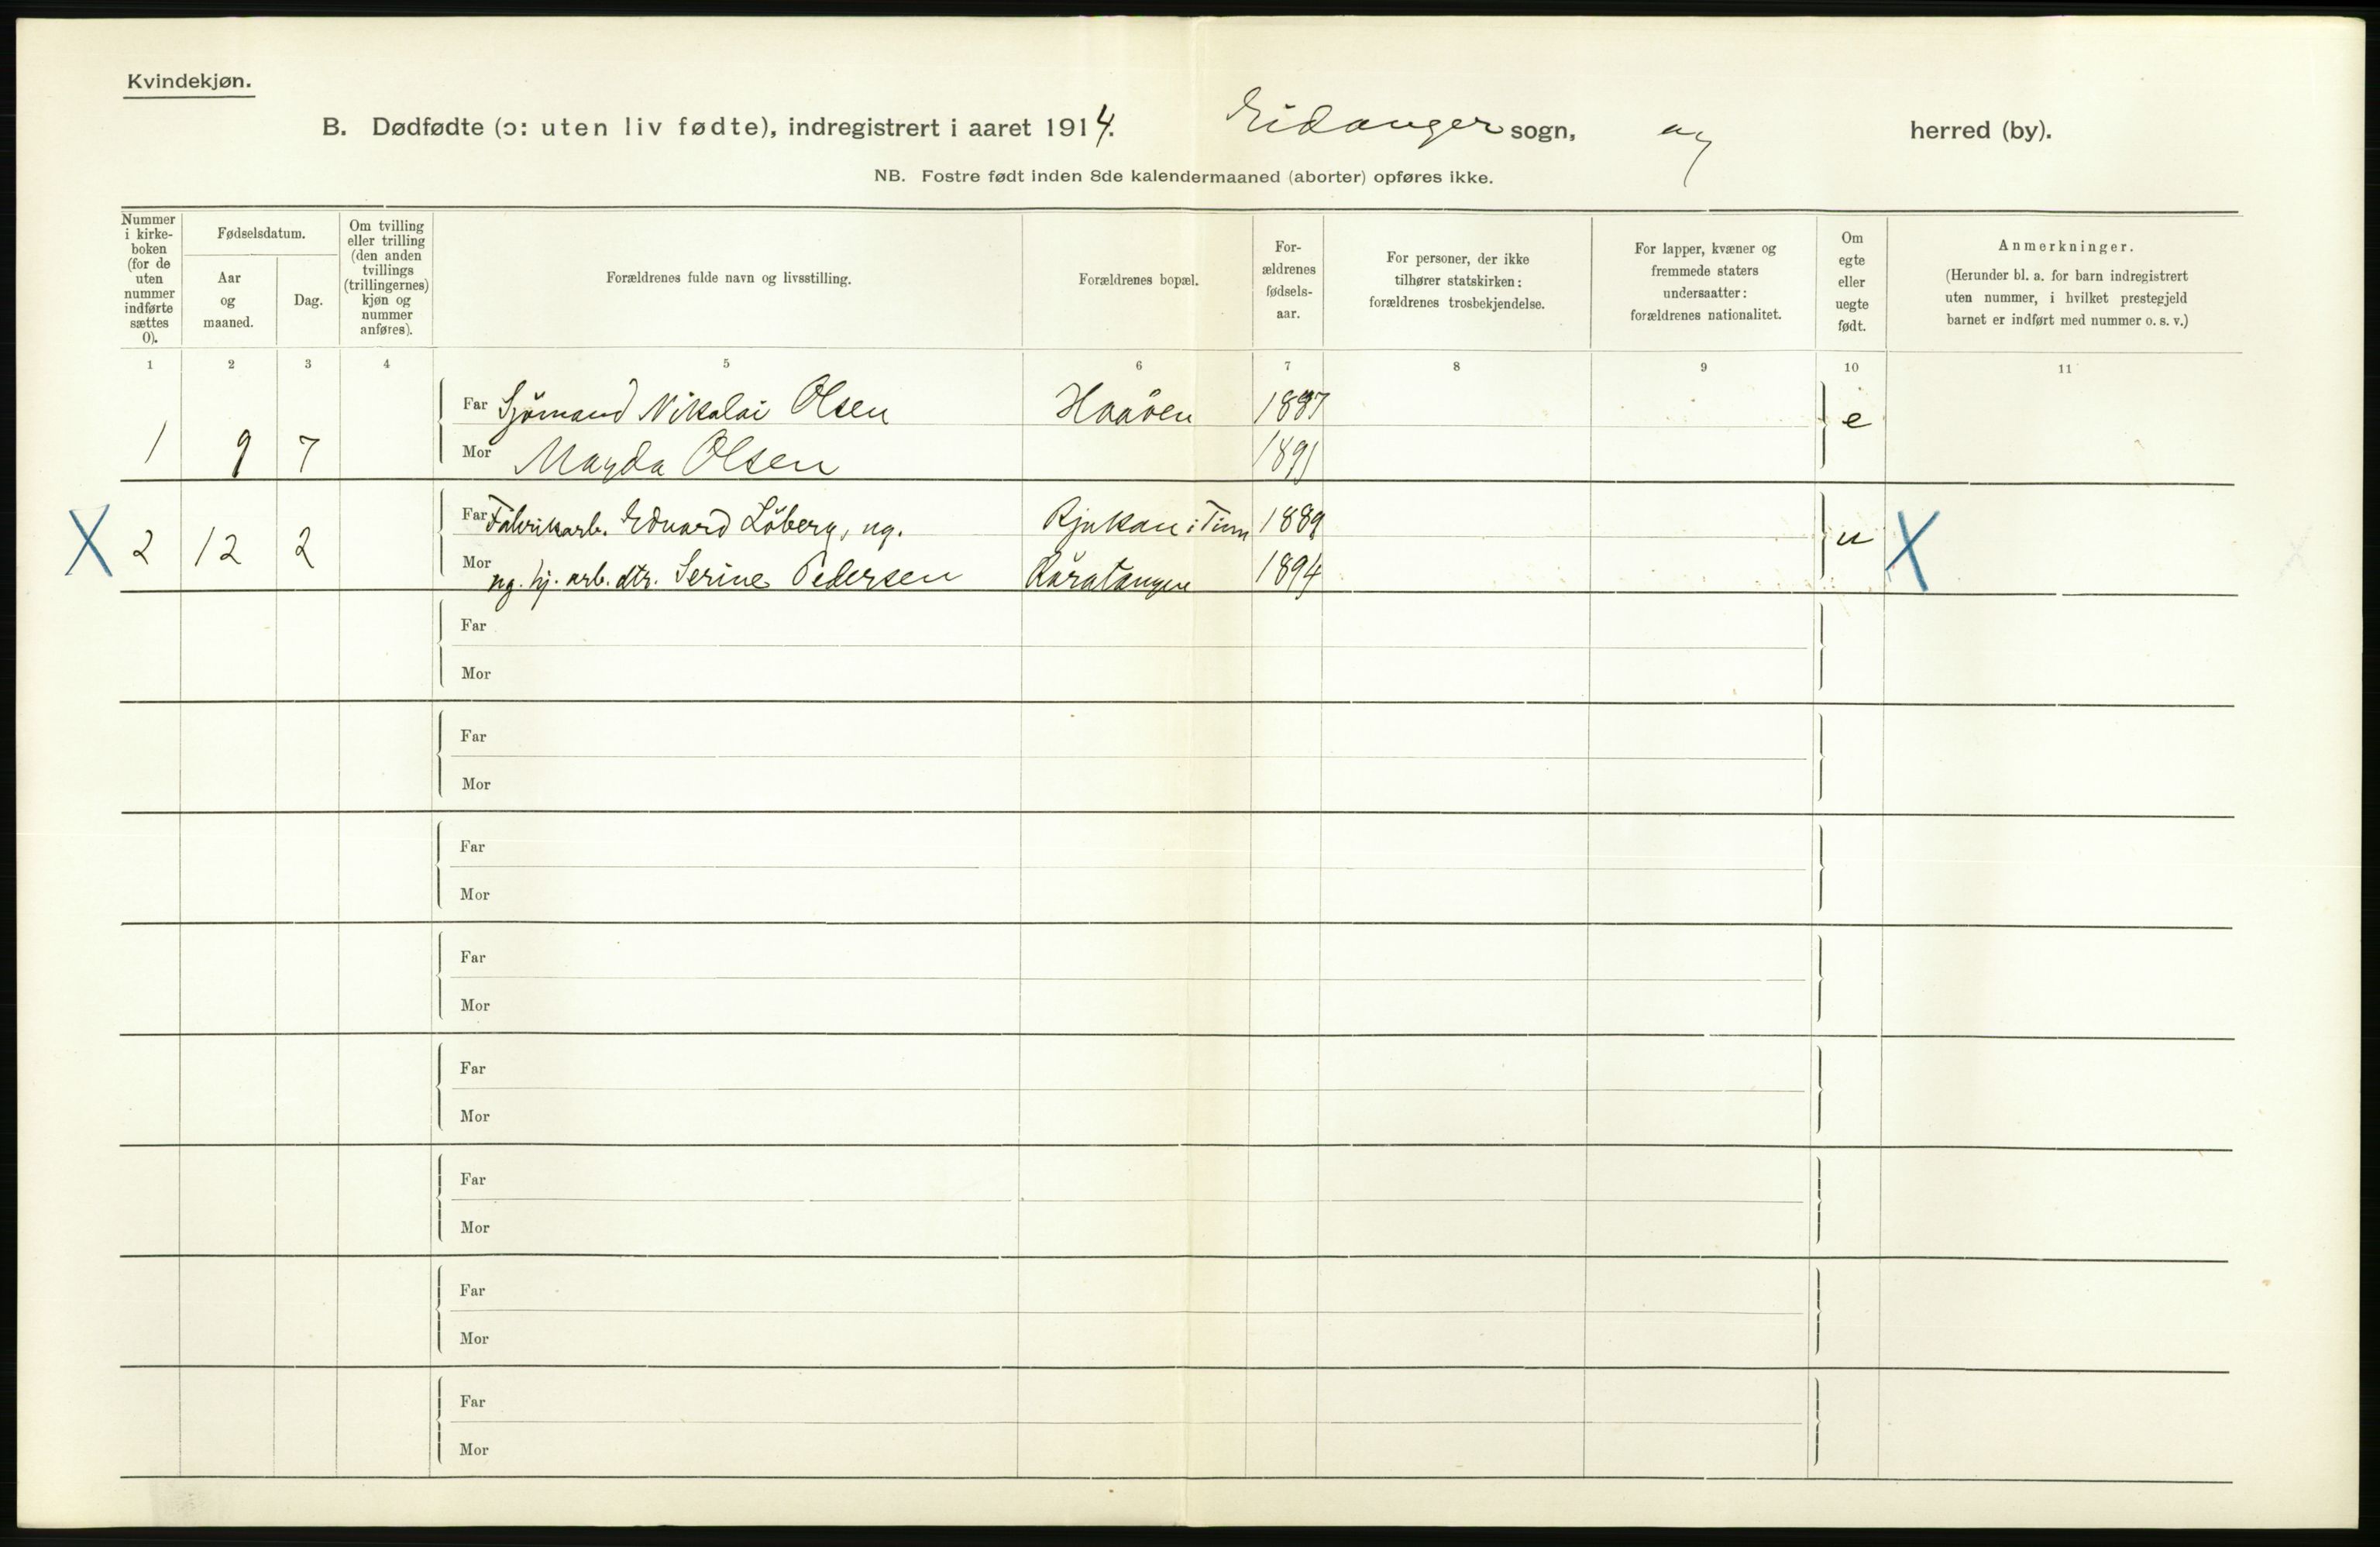 Kvindekjøn.
B. Dødfødte (ɔ: uten liv fødte), indregistrert i aaret 1914. Eidanger sogn, og herred (by).
NB. Fostre født inden 8de kalendermaaned (aborter) opføres ikke.
Nummer i kirke-boken (for de uten nummer indførte sættes 0).
Fødselsdatum.
Aar og maaned.
Dag.
Om tvilling eller trilling (den anden tvillings (trillingernes) kjøn og nummer anføres).
Forældrenes fulde navn og livsstilling.
Forældrenes bopæl.
For-ældrenes fødsels-aar.
For personer, der ikke tilhører statskirken: forældrenes trosbekjendelse.
For lapper, kvæner og fremmede staters undersaatter: forældrenes nationalitet.
Om egte eller uegte født.
Anmerkninger.
(Herunder bl. a. for barn indregistrert uten nummer, i hvilket prestegjeld barnet er indført med nummer o. s. v.)
1 2 3 4 5 6 7 8 9 10 11
Far Sjömand Nikolai Olsen Haaöen 1887
1 9 7 e
Mor Magda Olsen 1891
Far Fabrikarb. Edvard Löberg, ug. Rjukan i Tinn 1889
X 2 12 2 u X
Mor ug. hj. arb. dtr. Serine Pedersen Röratangen 1894
Far
Mor
Far
Mor
Far
Mor
Far
Mor
Far
Mor
Far
Mor
Far
Mor
Far
Mor